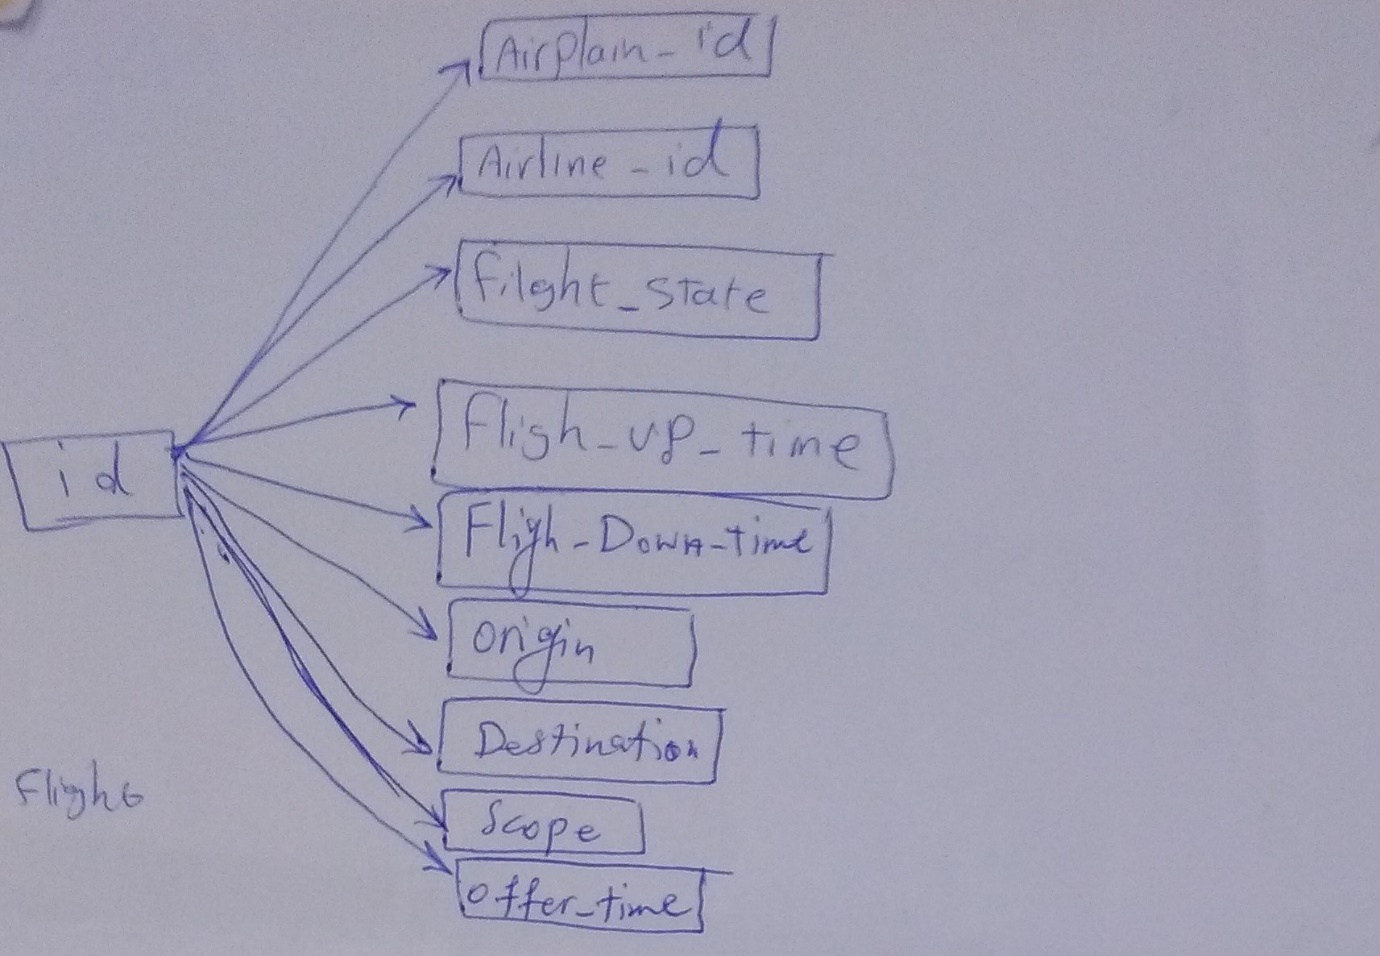 Airplain_id
Airline_id
filght_state
Fligh_up_time
id
Fligh_Down_time
origin
Destination
Flight
Scope
offer_time